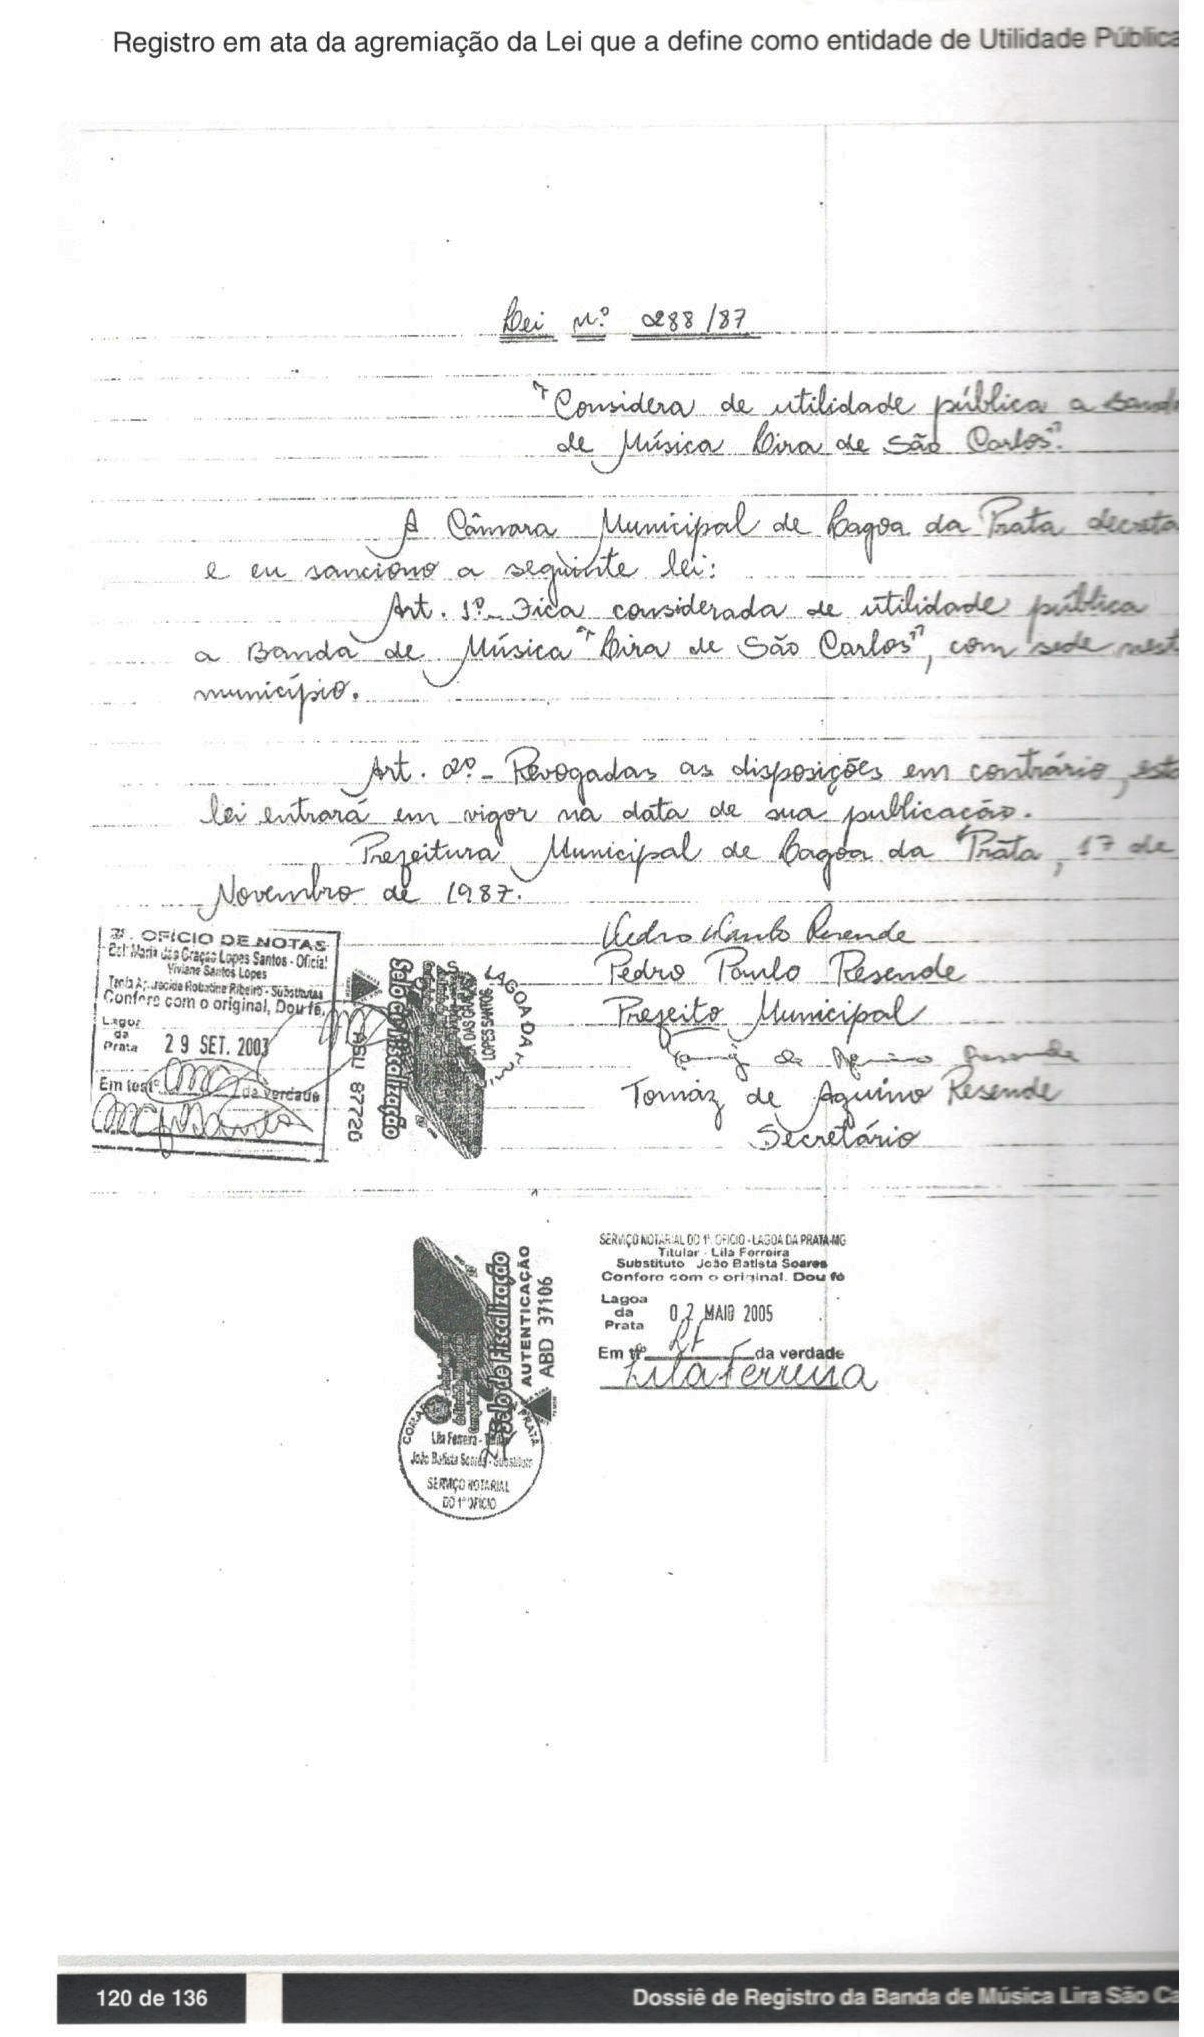 Registro em ata da agremiação da Lei que a define como entidade de Utilidade Pública
Lei nº 288/87
"Considera de utilidade pública a Band
de Música Lira de São Carlos".
A Câmara Municipal de Lagoa da Prata decreta
e eu sanciono a seguinte lei:
Art. 1º - Fica considerada de utilidade pública
a Banda de Música "Lira de São Carlos", com sede nest
município.
Art. 2º - Revogadas as disposições em contrário, esta
lei entrará em vigor na data de sua publicação.
Prefeitura Municipal de Lagoa da Prata, 17 de
Novembro de 1987.
Pedro Paulo Resende
Pedro Paulo Resende
Prefeito Municipal
Tomaz de Aquino Resende
Tomáz de Aquino Resende
Secretário
OFÍCIO DE NOTAS
Maria das Graças Lopes Santos - Oficial
Viviane Santos Lopes
Ribeiro - Substitutas
Confere com o original, Dou fé.
Lagoa
da
Prata
29 SET. 2003
Em testº da verdade
Selo de Fiscalização
ASU 87720
LAGOA DA
DAS GRAÇAS
LOPES SANTOS
SERVIÇO NOTARIAL DO 1º OFÍCIO - LAGOA DA PRATA-MG
Titular - Lila Ferreira
Substituto João Batista Soares
Confere com o original. Dou fé
Lagoa
da
Prata
02 MAIO 2005
Em tº da verdade
Lila Ferreira
Selo de Fiscalização
AUTENTICAÇÃO
ABD 37106
PRATA
Lila Ferreira -
João Batista Soares - Substituto
SERVIÇO NOTARIAL
DO 1º OFÍCIO
120 de 136
Dossiê de Registro da Banda de Música Lira São Ca